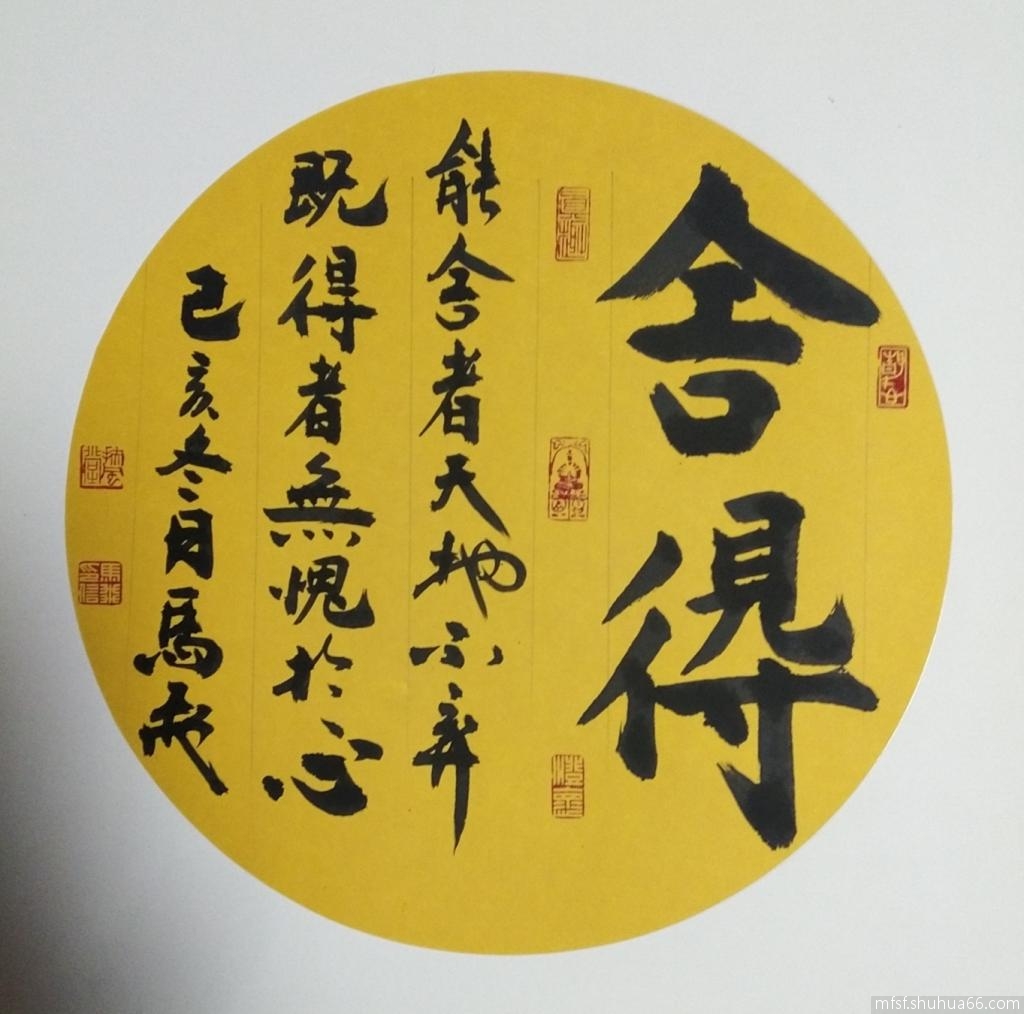 舍得
能舍者天地不弃
既得者無愧於心
己亥冬月馬
mfsf.shuhua66.com